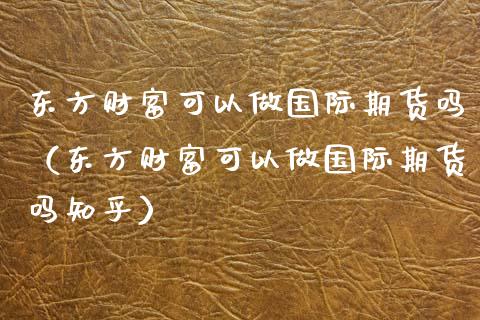 东方财富可以做国际期货吗
（东方财富可以做国际期货
吗知乎）